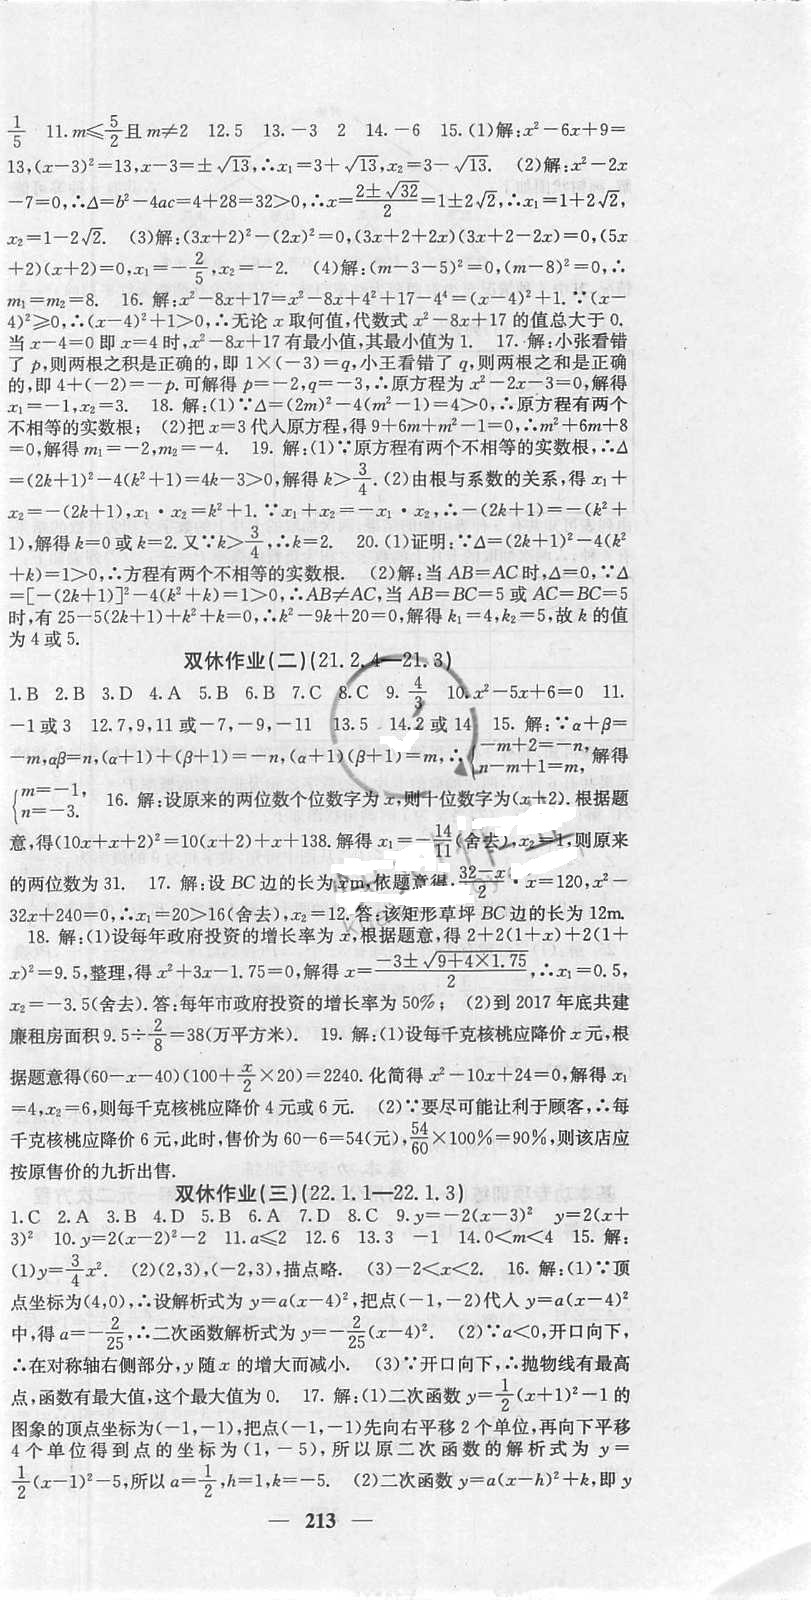 1/5　11.m≤5/2且m≠2　12.5　13.-3　2　14.-6　15.(1)解:x²-6x+9=
13,(x-3)²=13,x-3=±√13,∴x₁=3+√13,x₂=3-√13.　(2)解:x²-2x
-7=0,∴Δ=b²-4ac=4+28=32>0,∴x=(2±√32)/2=1±2√2,∴x₁=1+2√2,
x₂=1-2√2.　(3)解:(3x+2)²-(2x)²=0,(3x+2+2x)(3x+2-2x)=0,(5x
+2)(x+2)=0,x₁=-2/5,x₂=-2.　(4)解:(m-3-5)²=0,(m-8)²=0,∴
m₁=m₂=8.　16.解:x²-8x+17=x²-8x+4²+17-4⁴=(x-4)²+1.∵(x-
4)²≥0,∴(x-4)²+1>0,∴无论x取何值,代数式x²-8x+17的值总大于0.
当x-4=0即x=4时,x²-8x+17有最小值,其最小值为1.　17.解:小张看错
了p,则两根之积是正确的,即1×(-3)=q,小王看错了q,则两根之和是正确
的,即4+(-2)=-p.可解得p=-2,q=-3,∴原方程为x²-2x-3=0,解得
x₁=-1,x₂=3.　18.解:(1)∵Δ=(2m)²-4(m²-1)=4>0,∴原方程有两个
不相等的实数根;　(2)把x=3代入原方程,得9+6m+m²-1=0,∴m²+6m+8
=0,解得m₁=-2,m₂=-4.　19.解:(1)∵原方程有两个不相等的实数根,∴Δ
=(2k+1)²-4(k²+1)=4k-3>0,解得k>3/4.(2)由根与系数的关系,得x₁+
x₂=-(2k+1),x₁·x₂=k²+1.∵x₁+x₂=-x₁·x₂,∴-(2k+1)=-(k²+
1),解得k=0或k=2.又∵k>3/4,∴k=2.　20.(1)证明:∵Δ=(2k+1)²-4(k²
+k)=1>0,∴方程有两个不相等的实数根.　(2)解:当AB=AC时,Δ=0,∵Δ
=[-(2k+1)]²-4(k²+k)=1>0,∴AB≠AC,当AB=BC=5或AC=BC=5
时,有25-5(2k+1)+k²+k=0,∴k²-9k+20=0,解得k₁=4,k₂=5,故k的值
为4或5.
双休作业(二)(21.2.4—21.3)
1.B　2.B　3.D　4.A　5.B　6.B　7.C　8.C　9.4/3　10.x²-5x+6=0　11.
-1或3　12.7,9,11或-7,-9,-11　13.5　14.2或14　15.解:∵α+β=
-m,αβ=n,(α+1)+(β+1)=-n,(α+1)(β+1)=m,∴{-m+2=-n, n-m+1=m,解得
{m=-1, n=-3.　16.解:设原来的两位数个位数字为x,则十位数字为(x+2).根据题
意,得(10x+x+2)²=10(x+2)+x+138.解得x₁=-14/11(舍去),x₂=1,则原来
的两位数为31.　17.解:设BC边的长为xm,依题意得(32-x)/2·x=120,x²-
32x+240=0,∴x₁=20>16(舍去),x₂=12.答:该矩形草坪BC边的长为12m.
18.解:(1)设每年政府投资的增长率为x,根据题意,得2+2(1+x)+2(1+
x)²=9.5,整理,得x²+3x-1.75=0,解得x=(-3±√(9+4×1.75))/2,∴x₁=0.5,
x₂=-3.5(舍去).答:每年市政府投资的增长率为50%;　(2)到2017年底共建
廉租房面积9.5÷2/8=38(万平方米).　19.解:(1)设每千克核桃应降价x元,根
据题意得(60-x-40)(100+x/2×20)=2240.化简得x²-10x+24=0,解得x₁
=4,x₂=6,则每千克核桃应降价4元或6元.　(2)∵要尽可能让利于顾客,∴每
千克核桃应降价6元,此时,售价为60-6=54(元),54/60×100%=90%,则该店应
按原售价的九折出售.
双休作业(三)(22.1.1—22.1.3)
1.C　2.A　3.B　4.D　5.B　6.A　7.D　8.C　9.y=-2(x-3)²　y=2(x+
3)²　10.y=2(x-2)²-2　11.a≤2　12.6　13.3　-1　14.0<m<4　15.解:
(1)y=3/4x².　(2)(2,3),(-2,3),描点略.　(3)-2<x<2.　16.解:(1)∵顶
点坐标为(4,0),∴设解析式为y=a(x-4)²,把点(-1,-2)代人y=a(x-4)²
中,得a=-2/25,∴二次函数解析式为y=-2/25(x-4)².　(2)∵a<0,开口向下,
∴在对称轴右侧部分,y随x的增大而减小.　(3)∵开口向下,∴抛物线有最高
点,函数有最大值,这个最大值为0.　17.解:(1)二次函数y=1/2(x+1)²-1的
图象的顶点坐标为(-1,-1),把点(-1,-1)先向右平移2个单位,再向下平移
4个单位得到点的坐标为(1,-5),所以原二次函数的解析式为y=
1/2(x-1)²-5,所以a=1/2,h=1,k=-5.　(2)二次函数y=a(x-h)²+k,即y
— 213 —